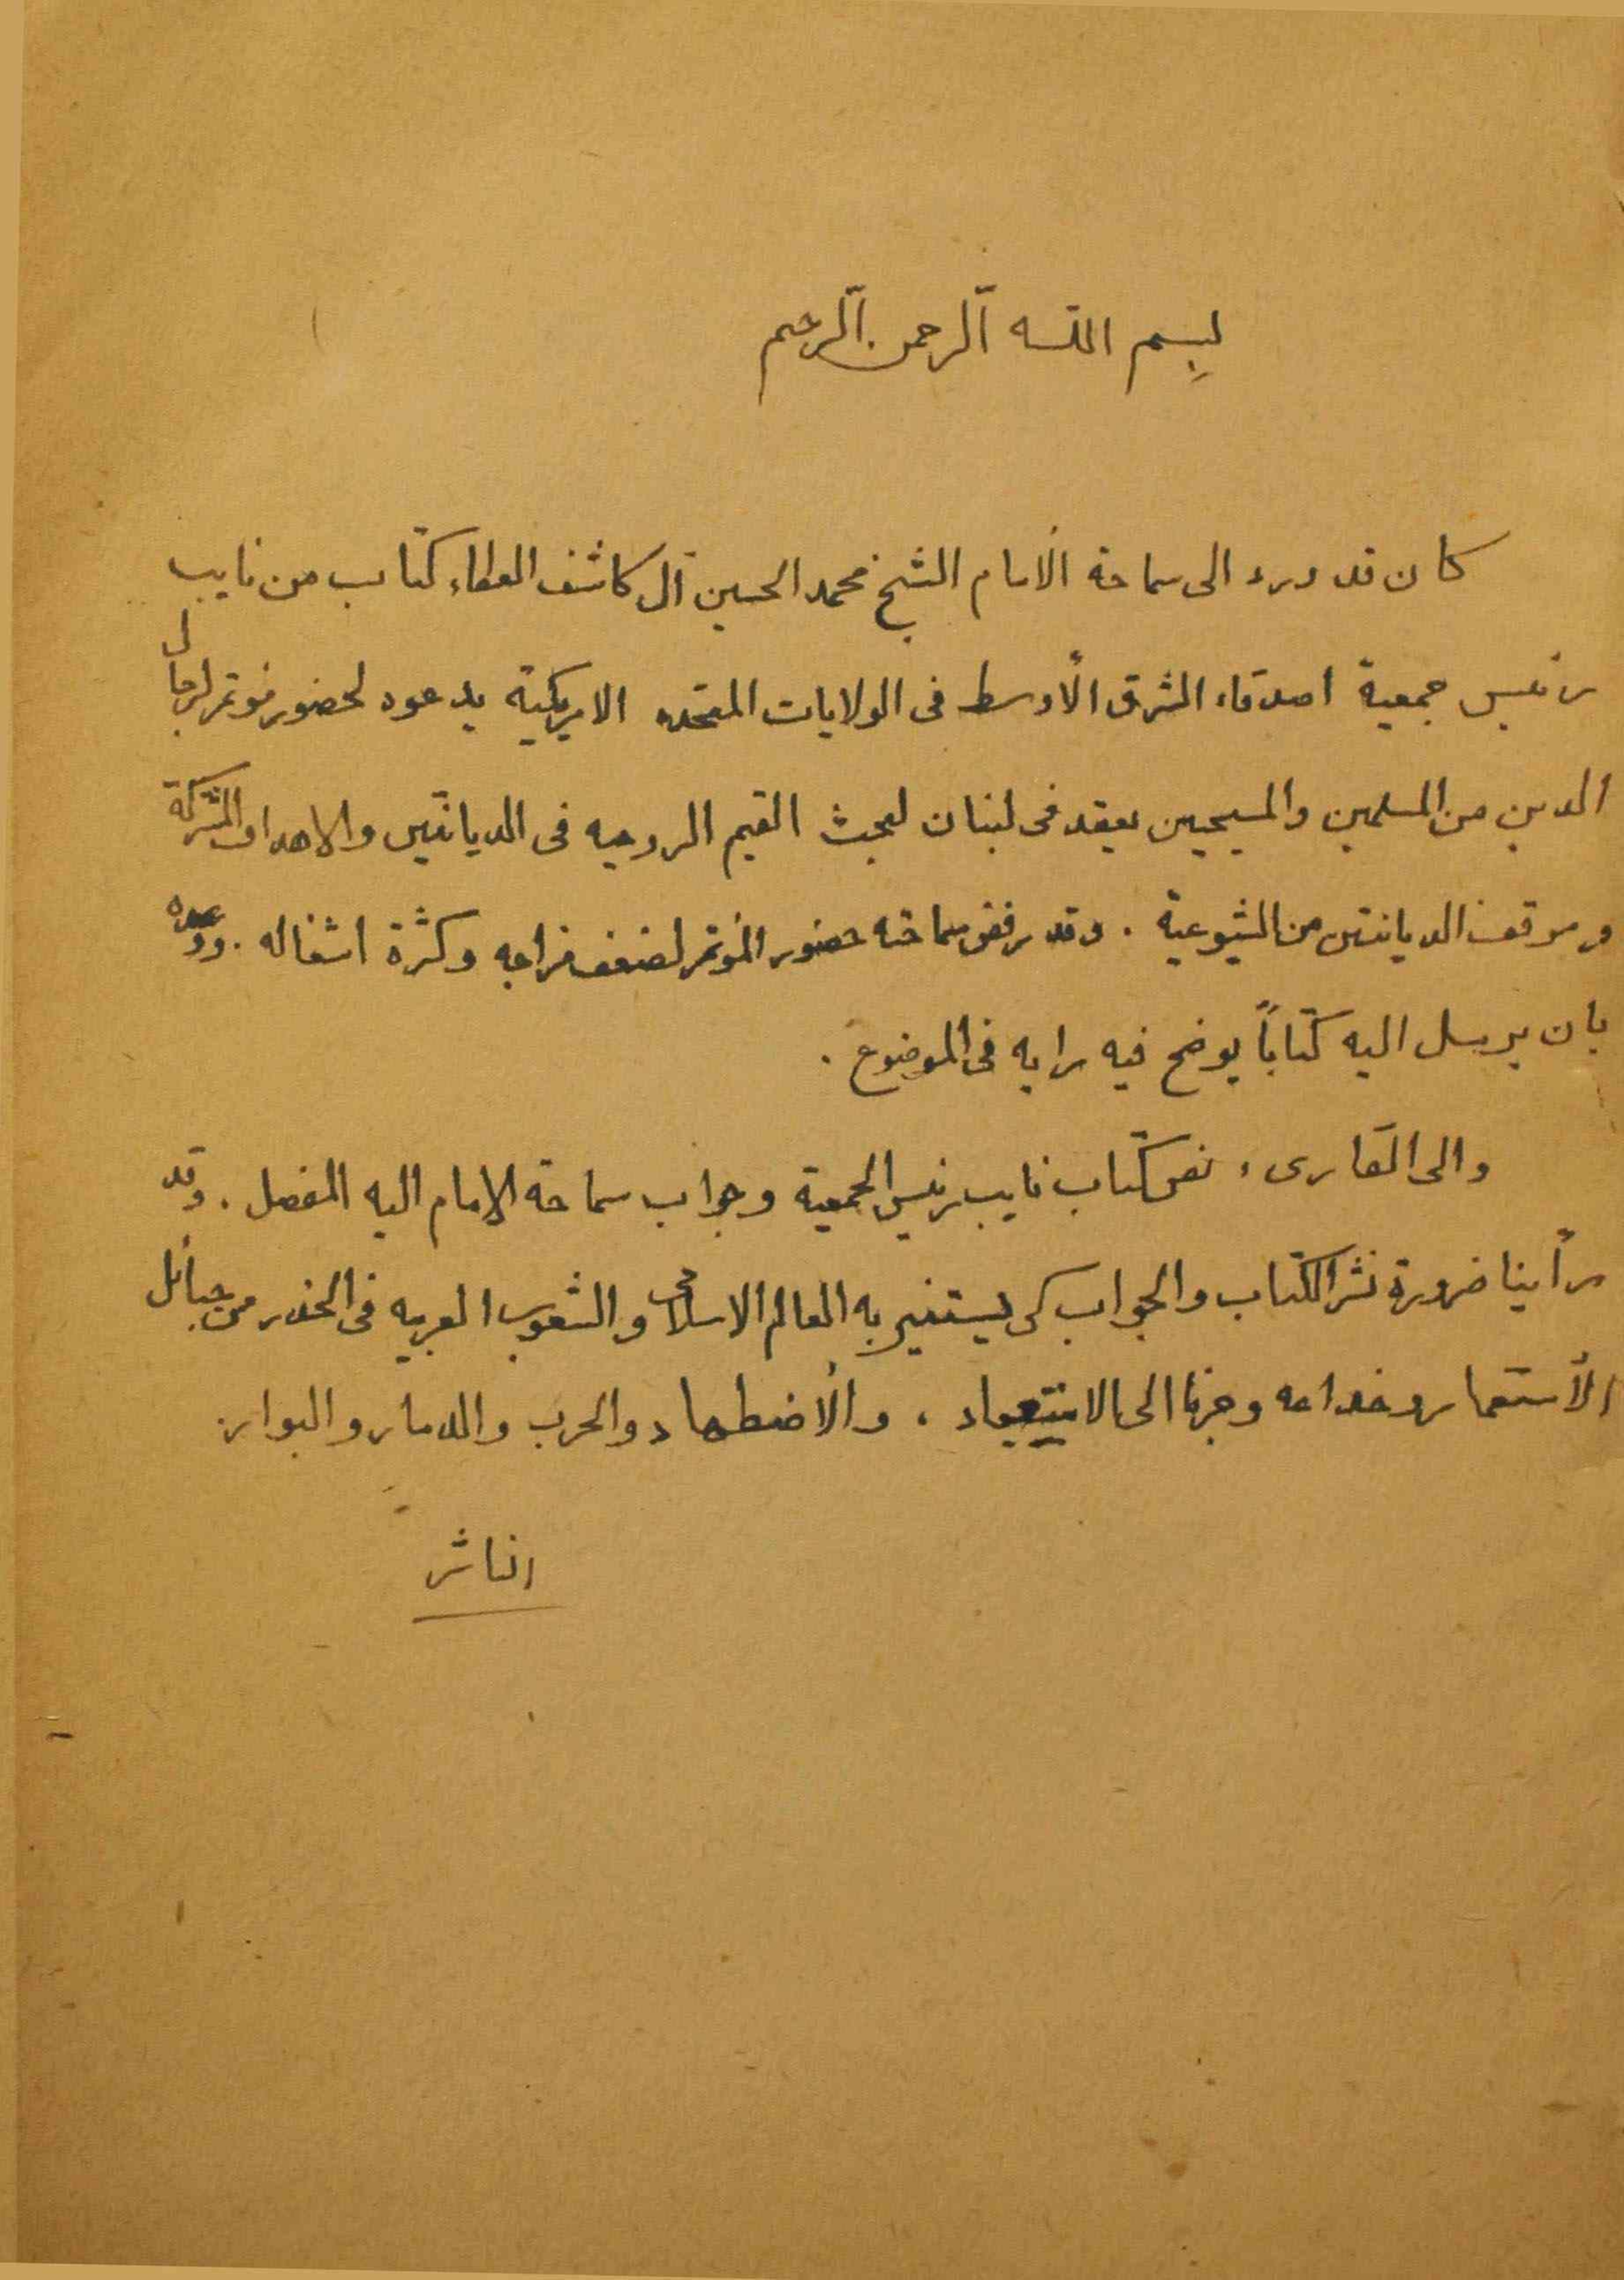 بسم الله الرحمن الرحيم
كان قد ورد الى سماحة الأمام الشيخ محمد الحسين آل كاشف الغطاء كتاب من نايب
رئيس جمعية اصدقاء الشرق الأوسط فى الولايات المتحده الامريكية يدعوه لحضور مؤتمر لرجال
الدين من المسلمين والمسيحيين يعقد فى لبنان لبحث القيم الروحيه فى الديانتين والاهداف المشتركة
وموقف الديانتين من الشيوعية . وقد رفض سماحته حضور المؤتمر لضعف مزاجه وكثرة اشغاله . ووعده
بان يرسل اليه كتاباً يوضح فيه رايه فى الموضوع .
والى القارىء نص كتاب نايب رئيس الجمعية وجواب سماحة الإمام اليه المفصل . وقد
رأينا ضرورة نشر الكتاب والجواب كى يستنير به العالم الاسلامى والشعوب العربيه فى الحذر من حبائل
الأستعمار وخداعه وجرنا الى الاستعباد ، والأضطهاد والحرب والدمار والبوار
الناشر